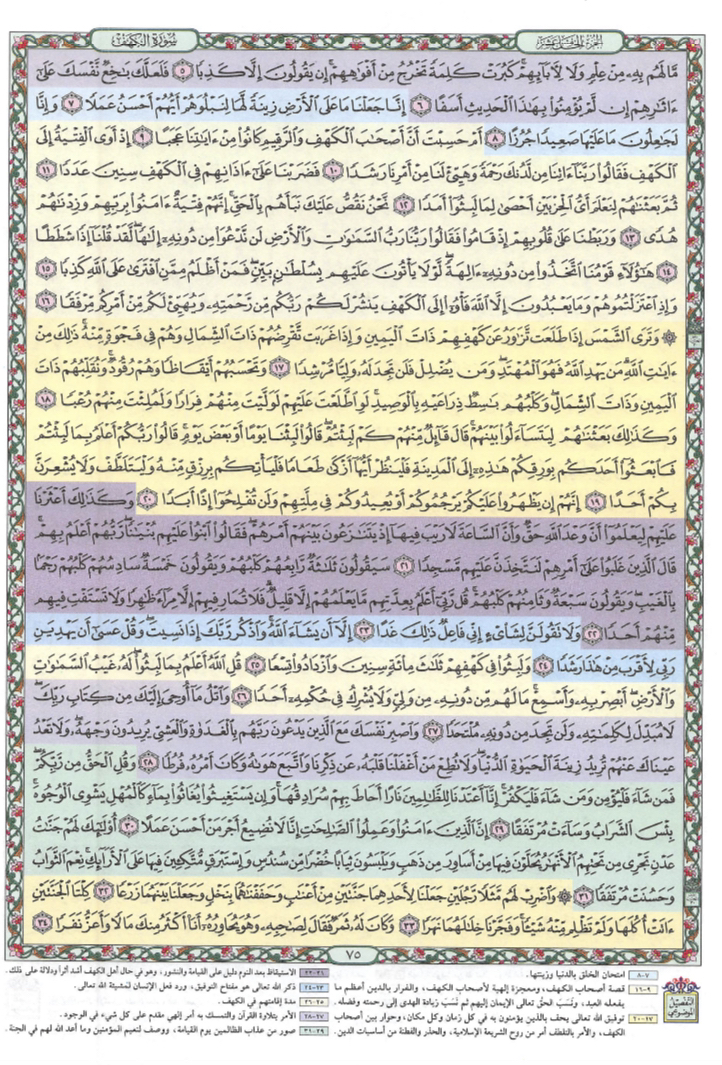 الجزء الخامس عشر
سُورَةُ الكَهْفِ
مَّا لَهُم بِهِۦ مِنْ عِلْمٍ وَلَا لِـَٔابَآئِهِمْ ۚ كَبُرَتْ كَلِمَةً تَخْرُجُ مِنْ أَفْوَٰهِهِمْ ۚ إِن يَقُولُونَ إِلَّا كَذِبًا ٥ فَلَعَلَّكَ بَٰخِعٌ نَّفْسَكَ عَلَىٰٓ
ءَاثَٰرِهِمْ إِن لَّمْ يُؤْمِنُوا۟ بِهَٰذَا ٱلْحَدِيثِ أَسَفًا ٦ إِنَّا جَعَلْنَا مَا عَلَى ٱلْأَرْضِ زِينَةً لَّهَا لِنَبْلُوَهُمْ أَيُّهُمْ أَحْسَنُ عَمَلًا ٧ وَإِنَّا
لَجَٰعِلُونَ مَا عَلَيْهَا صَعِيدًا جُرُزًا ٨ أَمْ حَسِبْتَ أَنَّ أَصْحَٰبَ ٱلْكَهْفِ وَٱلرَّقِيمِ كَانُوا۟ مِنْ ءَايَٰتِنَا عَجَبًا ٩ إِذْ أَوَى ٱلْفِتْيَةُ إِلَى
ٱلْكَهْفِ فَقَالُوا۟ رَبَّنَآ ءَاتِنَا مِن لَّدُنكَ رَحْمَةً وَهَيِّئْ لَنَا مِنْ أَمْرِنَا رَشَدًا ١٠ فَضَرَبْنَا عَلَىٰٓ ءَاذَانِهِمْ فِى ٱلْكَهْفِ سِنِينَ عَدَدًا ١١
ثُمَّ بَعَثْنَٰهُمْ لِنَعْلَمَ أَىُّ ٱلْحِزْبَيْنِ أَحْصَىٰ لِمَا لَبِثُوٓا۟ أَمَدًا ١٢ نَّحْنُ نَقُصُّ عَلَيْكَ نَبَأَهُم بِٱلْحَقِّ ۚ إِنَّهُمْ فِتْيَةٌ ءَامَنُوا۟ بِرَبِّهِمْ وَزِدْنَٰهُمْ
هُدًى ١٣ وَرَبَطْنَا عَلَىٰ قُلُوبِهِمْ إِذْ قَامُوا۟ فَقَالُوا۟ رَبُّنَا رَبُّ ٱلسَّمَٰوَٰتِ وَٱلْأَرْضِ لَن نَّدْعُوَا۟ مِن دُونِهِۦٓ إِلَٰهًا ۖ لَّقَدْ قُلْنَآ إِذًا شَطَطًا
١٤ هَٰٓؤُلَآءِ قَوْمُنَا ٱتَّخَذُوا۟ مِن دُونِهِۦٓ ءَالِهَةً ۖ لَّوْلَا يَأْتُونَ عَلَيْهِم بِسُلْطَٰنٍۭ بَيِّنٍ ۖ فَمَنْ أَظْلَمُ مِمَّنِ ٱفْتَرَىٰ عَلَى ٱللَّهِ كَذِبًا ١٥
وَإِذِ ٱعْتَزَلْتُمُوهُمْ وَمَا يَعْبُدُونَ إِلَّا ٱللَّهَ فَأْوُۥٓا۟ إِلَى ٱلْكَهْفِ يَنشُرْ لَكُمْ رَبُّكُم مِّن رَّحْمَتِهِۦ وَيُهَيِّئْ لَكُم مِّنْ أَمْرِكُم مِّرْفَقًا ١٦
۞ وَتَرَى ٱلشَّمْسَ إِذَا طَلَعَت تَّزَٰوَرُ عَن كَهْفِهِمْ ذَاتَ ٱلْيَمِينِ وَإِذَا غَرَبَت تَّقْرِضُهُمْ ذَاتَ ٱلشِّمَالِ وَهُمْ فِى فَجْوَةٍ مِّنْهُ ۚ ذَٰلِكَ مِنْ
ءَايَٰتِ ٱللَّهِ ۗ مَن يَهْدِ ٱللَّهُ فَهُوَ ٱلْمُهْتَدِ ۖ وَمَن يُضْلِلْ فَلَن تَجِدَ لَهُۥ وَلِيًّا مُّرْشِدًا ١٧ وَتَحْسَبُهُمْ أَيْقَاظًا وَهُمْ رُقُودٌ ۚ وَنُقَلِّبُهُمْ ذَاتَ
ٱلْيَمِينِ وَذَاتَ ٱلشِّمَالِ ۖ وَكَلْبُهُم بَٰسِطٌ ذِرَاعَيْهِ بِٱلْوَصِيدِ ۚ لَوِ ٱطَّلَعْتَ عَلَيْهِمْ لَوَلَّيْتَ مِنْهُمْ فِرَارًا وَلَمُلِئْتَ مِنْهُمْ رُعْبًا ١٨
وَكَذَٰلِكَ بَعَثْنَٰهُمْ لِيَتَسَآءَلُوا۟ بَيْنَهُمْ ۚ قَالَ قَآئِلٌ مِّنْهُمْ كَمْ لَبِثْتُمْ ۖ قَالُوا۟ لَبِثْنَا يَوْمًا أَوْ بَعْضَ يَوْمٍ ۚ قَالُوا۟ رَبُّكُمْ أَعْلَمُ بِمَا لَبِثْتُمْ
فَٱبْعَثُوٓا۟ أَحَدَكُم بِوَرِقِكُمْ هَٰذِهِۦٓ إِلَى ٱلْمَدِينَةِ فَلْيَنظُرْ أَيُّهَآ أَزْكَىٰ طَعَامًا فَلْيَأْتِكُم بِرِزْقٍ مِّنْهُ وَلْيَتَلَطَّفْ وَلَا يُشْعِرَنَّ
بِكُمْ أَحَدًا ١٩ إِنَّهُمْ إِن يَظْهَرُوا۟ عَلَيْكُمْ يَرْجُمُوكُمْ أَوْ يُعِيدُوكُمْ فِى مِلَّتِهِمْ وَلَن تُفْلِحُوٓا۟ إِذًا أَبَدًا ٢٠ وَكَذَٰلِكَ أَعْثَرْنَا
عَلَيْهِمْ لِيَعْلَمُوٓا۟ أَنَّ وَعْدَ ٱللَّهِ حَقٌّ وَأَنَّ ٱلسَّاعَةَ لَا رَيْبَ فِيهَآ إِذْ يَتَنَٰزَعُونَ بَيْنَهُمْ أَمْرَهُمْ ۖ فَقَالُوا۟ ٱبْنُوا۟ عَلَيْهِم بُنْيَٰنًا ۖ رَّبُّهُمْ أَعْلَمُ بِهِمْ ۚ
قَالَ ٱلَّذِينَ غَلَبُوا۟ عَلَىٰٓ أَمْرِهِمْ لَنَتَّخِذَنَّ عَلَيْهِم مَّسْجِدًا ٢١ سَيَقُولُونَ ثَلَٰثَةٌ رَّابِعُهُمْ كَلْبُهُمْ وَيَقُولُونَ خَمْسَةٌ سَادِسُهُمْ كَلْبُهُمْ رَجْمًۢا
بِٱلْغَيْبِ ۖ وَيَقُولُونَ سَبْعَةٌ وَثَامِنُهُمْ كَلْبُهُمْ ۚ قُل رَّبِّىٓ أَعْلَمُ بِعِدَّتِهِم مَّا يَعْلَمُهُمْ إِلَّا قَلِيلٌ ۗ فَلَا تُمَارِ فِيهِمْ إِلَّا مِرَآءً ظَٰهِرًا وَلَا تَسْتَفْتِ فِيهِم
مِّنْهُمْ أَحَدًا ٢٢ وَلَا تَقُولَنَّ لِشَا۟ىْءٍ إِنِّى فَاعِلٌ ذَٰلِكَ غَدًا ٢٣ إِلَّآ أَن يَشَآءَ ٱللَّهُ ۚ وَٱذْكُر رَّبَّكَ إِذَا نَسِيتَ وَقُلْ عَسَىٰٓ أَن يَهْدِيَنِ
رَبِّى لِأَقْرَبَ مِنْ هَٰذَا رَشَدًا ٢٤ وَلَبِثُوا۟ فِى كَهْفِهِمْ ثَلَٰثَ مِا۟ئَةٍ سِنِينَ وَٱزْدَادُوا۟ تِسْعًا ٢٥ قُلِ ٱللَّهُ أَعْلَمُ بِمَا لَبِثُوا۟ ۖ لَهُۥ غَيْبُ ٱلسَّمَٰوَٰتِ
وَٱلْأَرْضِ ۖ أَبْصِرْ بِهِۦ وَأَسْمِعْ ۚ مَا لَهُم مِّن دُونِهِۦ مِن وَلِىٍّ وَلَا يُشْرِكُ فِى حُكْمِهِۦٓ أَحَدًا ٢٦ وَٱتْلُ مَآ أُوحِىَ إِلَيْكَ مِن كِتَابِ رَبِّكَ ۖ
لَا مُبَدِّلَ لِكَلِمَٰتِهِۦ وَلَن تَجِدَ مِن دُونِهِۦ مُلْتَحَدًا ٢٧ وَٱصْبِرْ نَفْسَكَ مَعَ ٱلَّذِينَ يَدْعُونَ رَبَّهُم بِٱلْغَدَوٰةِ وَٱلْعَشِىِّ يُرِيدُونَ وَجْهَهُۥ ۖ وَلَا تَعْدُ
عَيْنَاكَ عَنْهُمْ تُرِيدُ زِينَةَ ٱلْحَيَوٰةِ ٱلدُّنْيَا ۖ وَلَا تُطِعْ مَنْ أَغْفَلْنَا قَلْبَهُۥ عَن ذِكْرِنَا وَٱتَّبَعَ هَوَىٰهُ وَكَانَ أَمْرُهُۥ فُرُطًا ٢٨ وَقُلِ ٱلْحَقُّ مِن رَّبِّكُمْ ۖ
فَمَن شَآءَ فَلْيُؤْمِن وَمَن شَآءَ فَلْيَكْفُرْ ۚ إِنَّآ أَعْتَدْنَا لِلظَّٰلِمِينَ نَارًا أَحَاطَ بِهِمْ سُرَادِقُهَا ۚ وَإِن يَسْتَغِيثُوا۟ يُغَاثُوا۟ بِمَآءٍ كَٱلْمُهْلِ يَشْوِى ٱلْوُجُوهَ ۚ
بِئْسَ ٱلشَّرَابُ وَسَآءَتْ مُرْتَفَقًا ٢٩ إِنَّ ٱلَّذِينَ ءَامَنُوا۟ وَعَمِلُوا۟ ٱلصَّٰلِحَٰتِ إِنَّا لَا نُضِيعُ أَجْرَ مَنْ أَحْسَنَ عَمَلًا ٣٠ أُو۟لَٰٓئِكَ لَهُمْ جَنَّٰتُ
عَدْنٍ تَجْرِى مِن تَحْتِهِمُ ٱلْأَنْهَٰرُ يُحَلَّوْنَ فِيهَا مِنْ أَسَاوِرَ مِن ذَهَبٍ وَيَلْبَسُونَ ثِيَابًا خُضْرًا مِّن سُندُسٍ وَإِسْتَبْرَقٍ مُّتَّكِـِٔينَ فِيهَا عَلَى ٱلْأَرَآئِكِ ۚ نِعْمَ ٱلثَّوَابُ
وَحَسُنَتْ مُرْتَفَقًا ٣١ ۞ وَٱضْرِبْ لَهُم مَّثَلًا رَّجُلَيْنِ جَعَلْنَا لِأَحَدِهِمَا جَنَّتَيْنِ مِنْ أَعْنَٰبٍ وَحَفَفْنَٰهُمَا بِنَخْلٍ وَجَعَلْنَا بَيْنَهُمَا زَرْعًا ٣٢ كِلْتَا ٱلْجَنَّتَيْنِ
ءَاتَتْ أُكُلَهَا وَلَمْ تَظْلِم مِّنْهُ شَيْـًٔا ۚ وَفَجَّرْنَا خِلَٰلَهُمَا نَهَرًا ٣٣ وَكَانَ لَهُۥ ثَمَرٌ فَقَالَ لِصَٰحِبِهِۦ وَهُوَ يُحَاوِرُهُۥٓ أَنَا۠ أَكْثَرُ مِنكَ مَالًا وَأَعَزُّ نَفَرًا ٣٤
٧٥
٧-٨ امتحان الخلق بالدنيا وزينتها.
٩-١٦ قصة أصحاب الكهف، ومعجزة إلهية لأصحاب الكهف، والفرار بالدين أعظم ما
يفعله العبد، ونَسَبَ الحق تعالى الإيمان إليهم ثم نَسَبَ زيادة الهدى إلى رحمته وفضله.
١٧-٢٠ توفيق الله تعالى يحف بالذين يؤمنون به في كل زمان وكل مكان، وحوار بين أصحاب
الكهف، والأمر بالتلطف أمر من روح الشريعة الإسلامية، والحذر والفطنة من أساسيات الدين.
٢١-٢٢ الاستيقاظ بعد النوم دليل على القيامة والنشور، وهو في حال أهل الكهف أشد أثراً ودلالة على ذلك.
٢٣-٢٤ ذكر الله تعالى هو مفتاح التوفيق، ورد فعل الإنسان لمشيئة الله تعالى.
٢٥-٢٦ مدة إقامتهم في الكهف.
٢٧-٢٨ الأمر بتلاوة القرآن والتمسك به أمر إلهي مقدم على كل شيء في الوجود.
٢٩-٣١ صور من عذاب الظالمين يوم القيامة، ووصف لنعيم المؤمنين وما أعد الله لهم في الجنة.
التفصيل الموضوعي